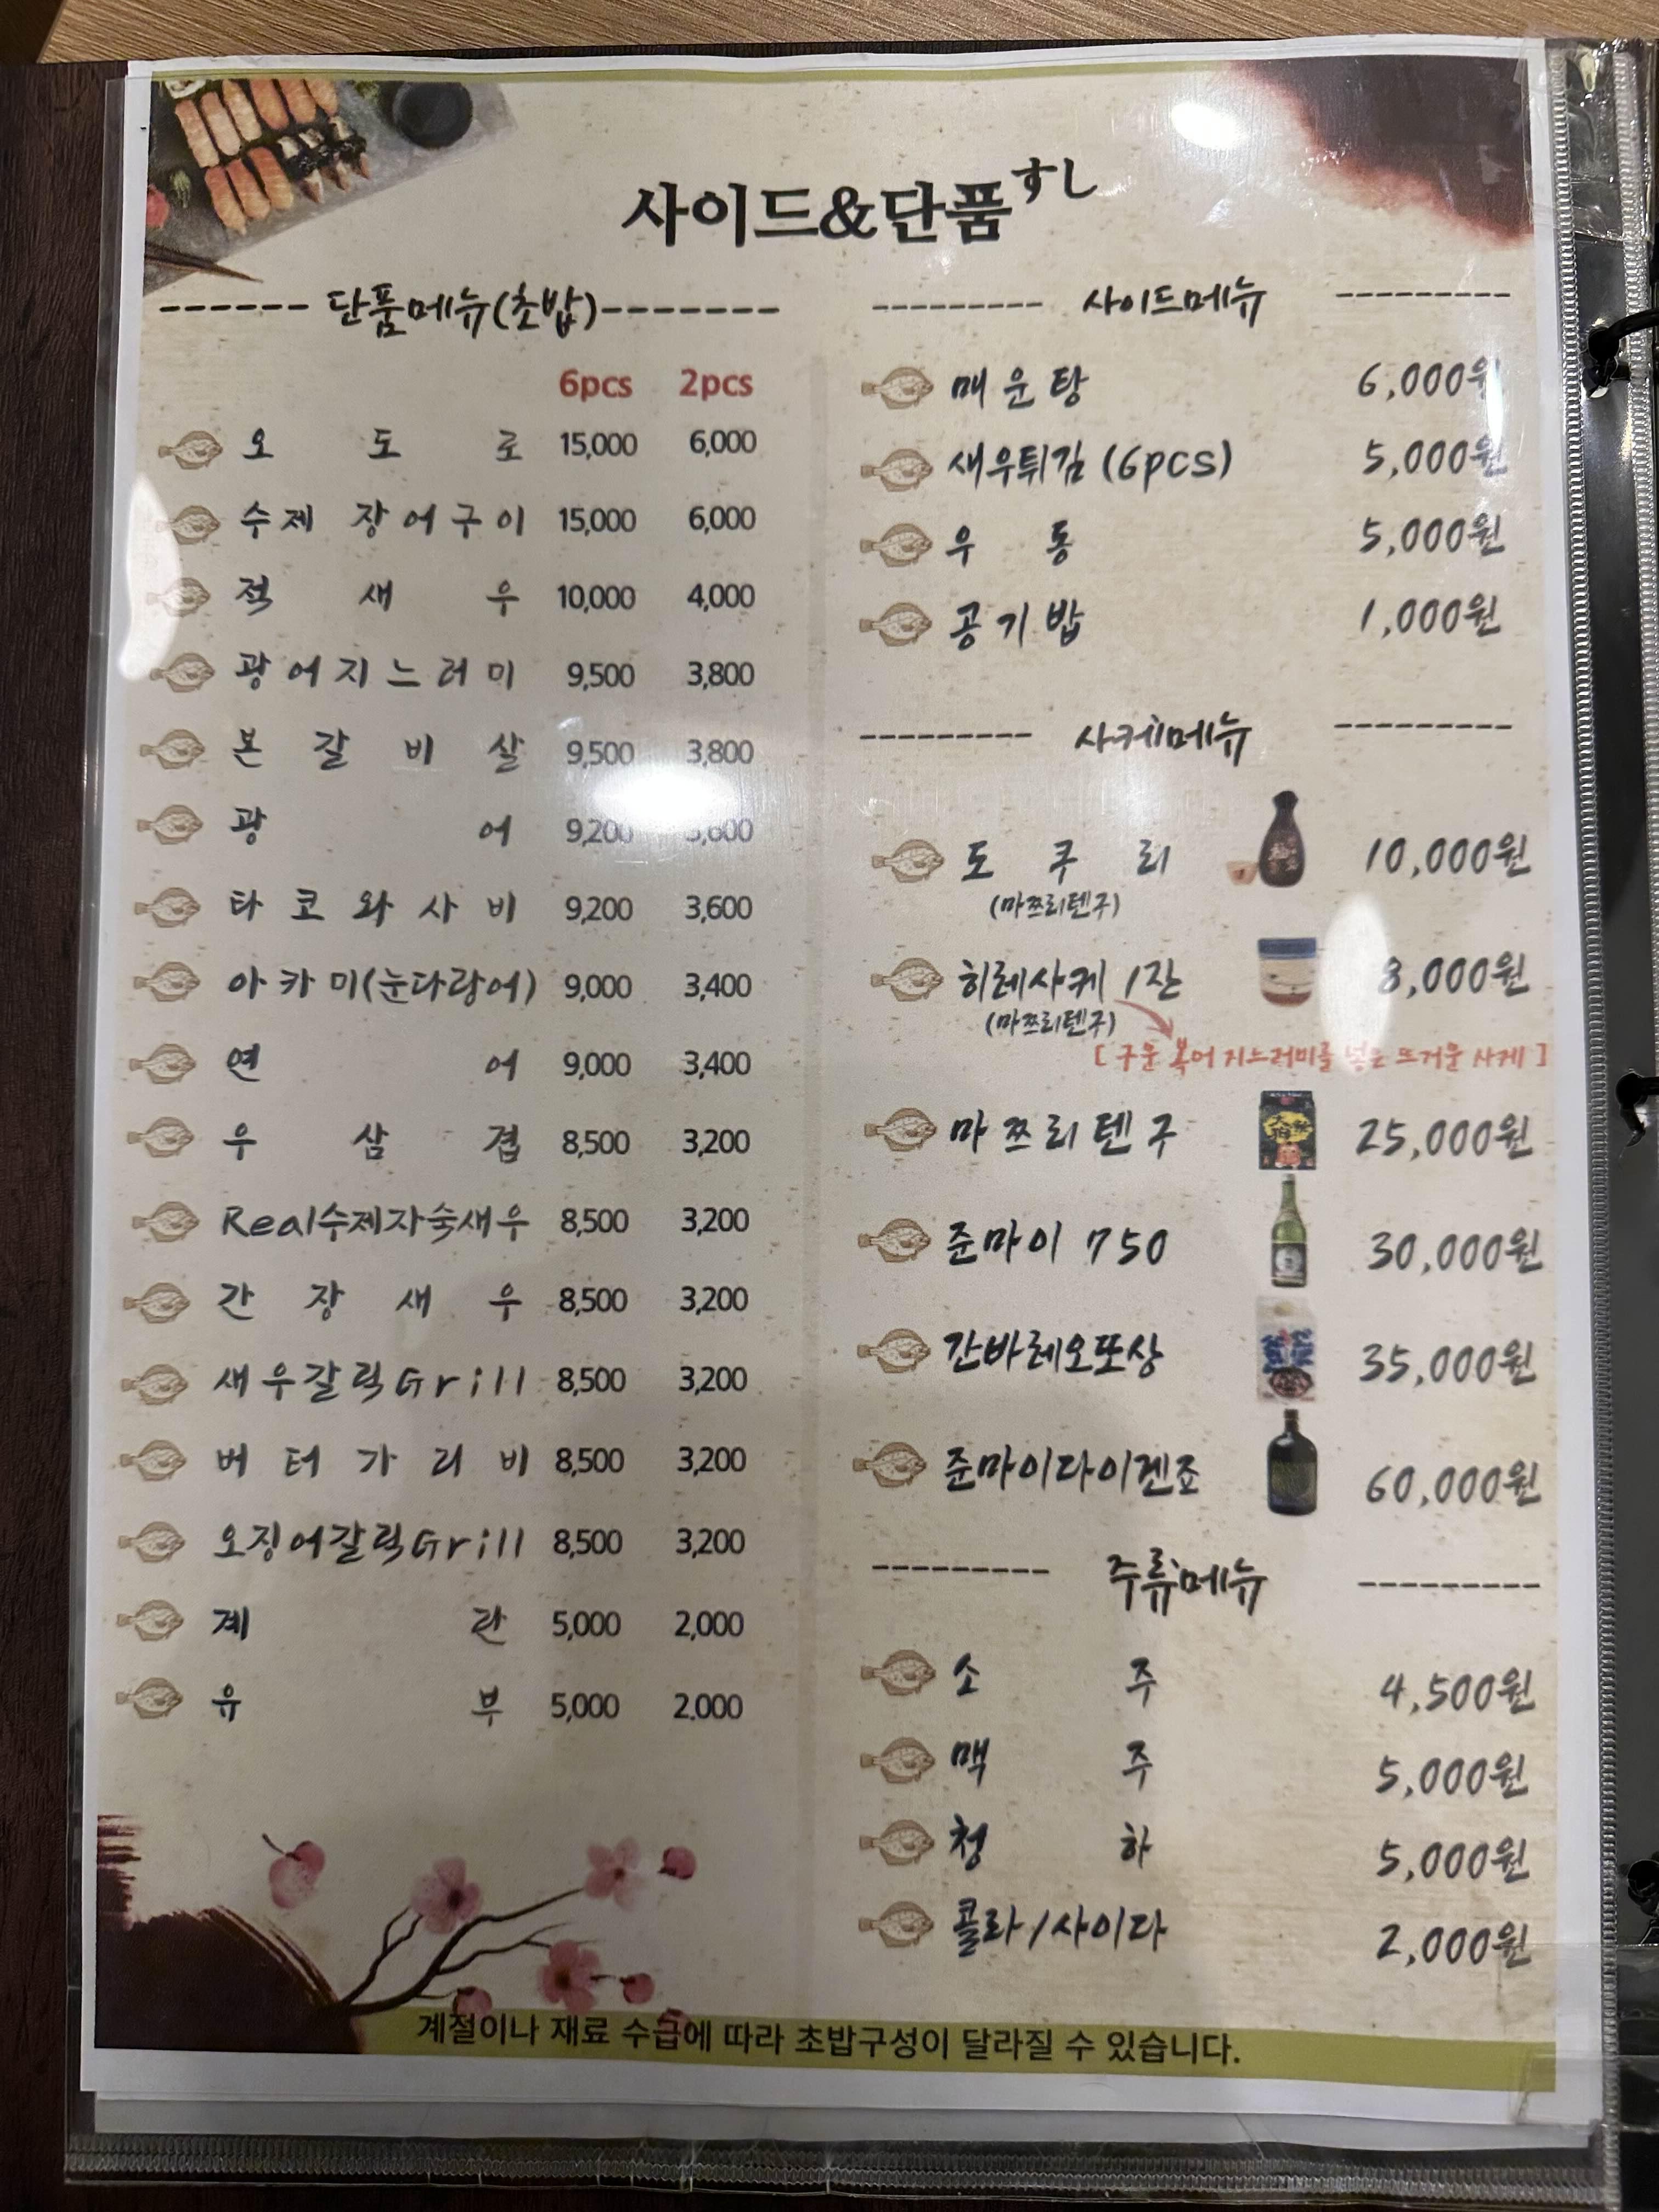 사이드&단품すし
단품메뉴(초밥)
6pcs 2pcs
오도로 15,000 6,000
수제 장어구이 15,000 6,000
적새우 10,000 4,000
광어지느러미 9,500 3,800
본갈비살 9,500 3,800
광어 9,200
타코와사비 9,200 3,600
아카미(눈다랑어) 9,000 3,400
연어 9,000 3,400
우삼겹 8,500 3,200
Real수제자숙새우 8,500 3,200
간장새우 8,500 3,200
새우갈릭Grill 8,500 3,200
버터가리비 8,500 3,200
오징어갈릭Grill 8,500 3,200
계란 5,000 2,000
유부 5,000 2,000
사이드메뉴
매운탕 6,000원
새우튀김 (6pcs) 5,000원
우동 5,000원
공기밥 1,000원
사케메뉴
도쿠리 10,000원
(마쯔리텐구)
히레사케 1잔 8,000원
(마쯔리텐구)
[구운 복어 지느러미를 넣은 뜨거운 사케]
마쯔리텐구 25,000원
준마이 750 30,000원
간바레오또상 35,000원
준마이다이겐죠 60,000원
주류메뉴
소주 4,500원
맥주 5,000원
청하 5,000원
콜라/사이다 2,000원
계절이나 재료 수급에 따라 초밥구성이 달라질 수 있습니다.